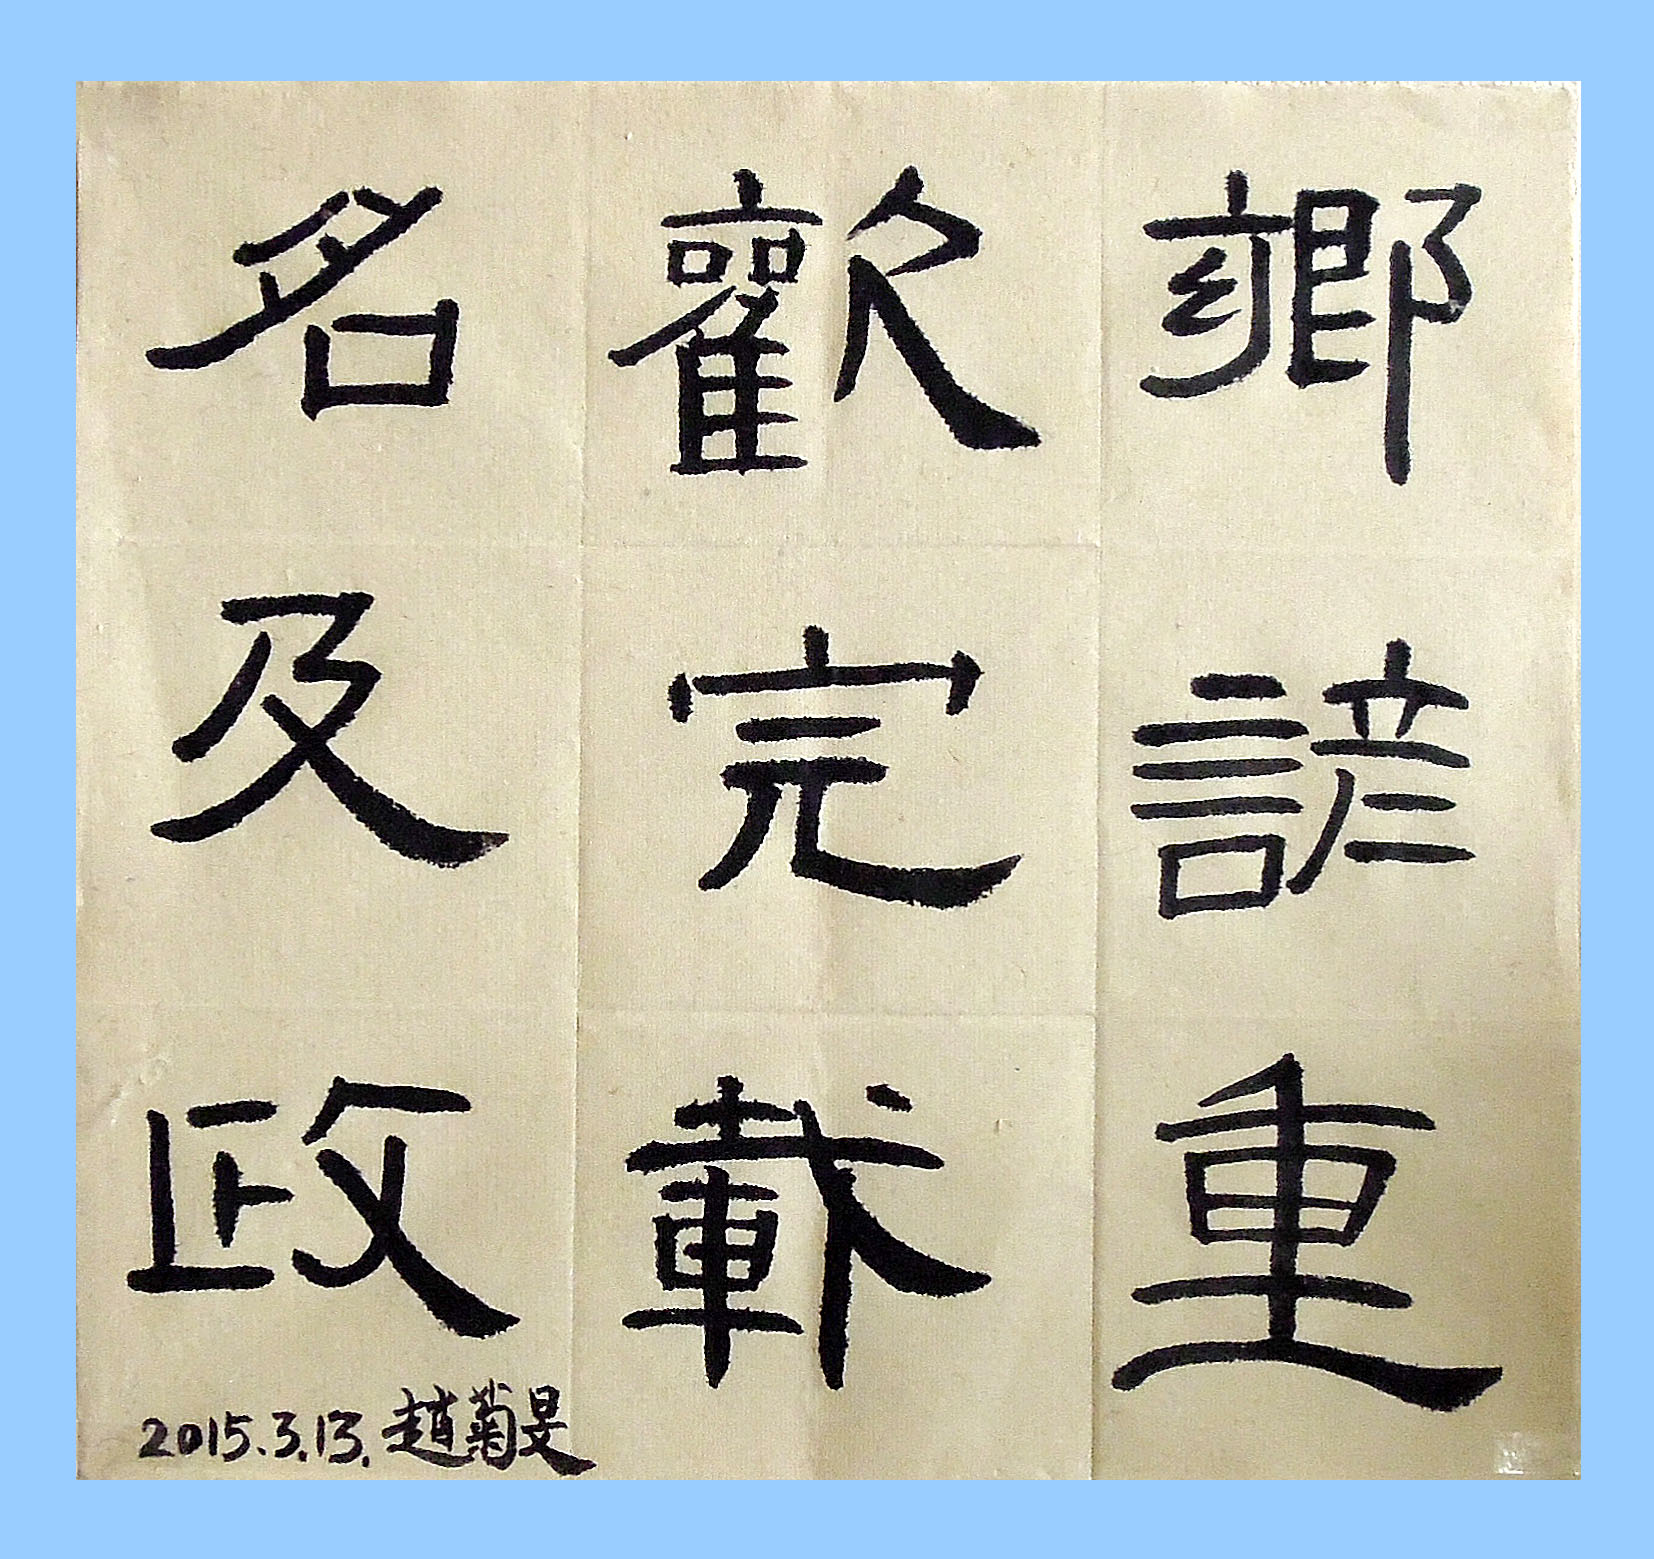 鄉諺重
歡完載
名及政
2015.3.13.趙菊旻